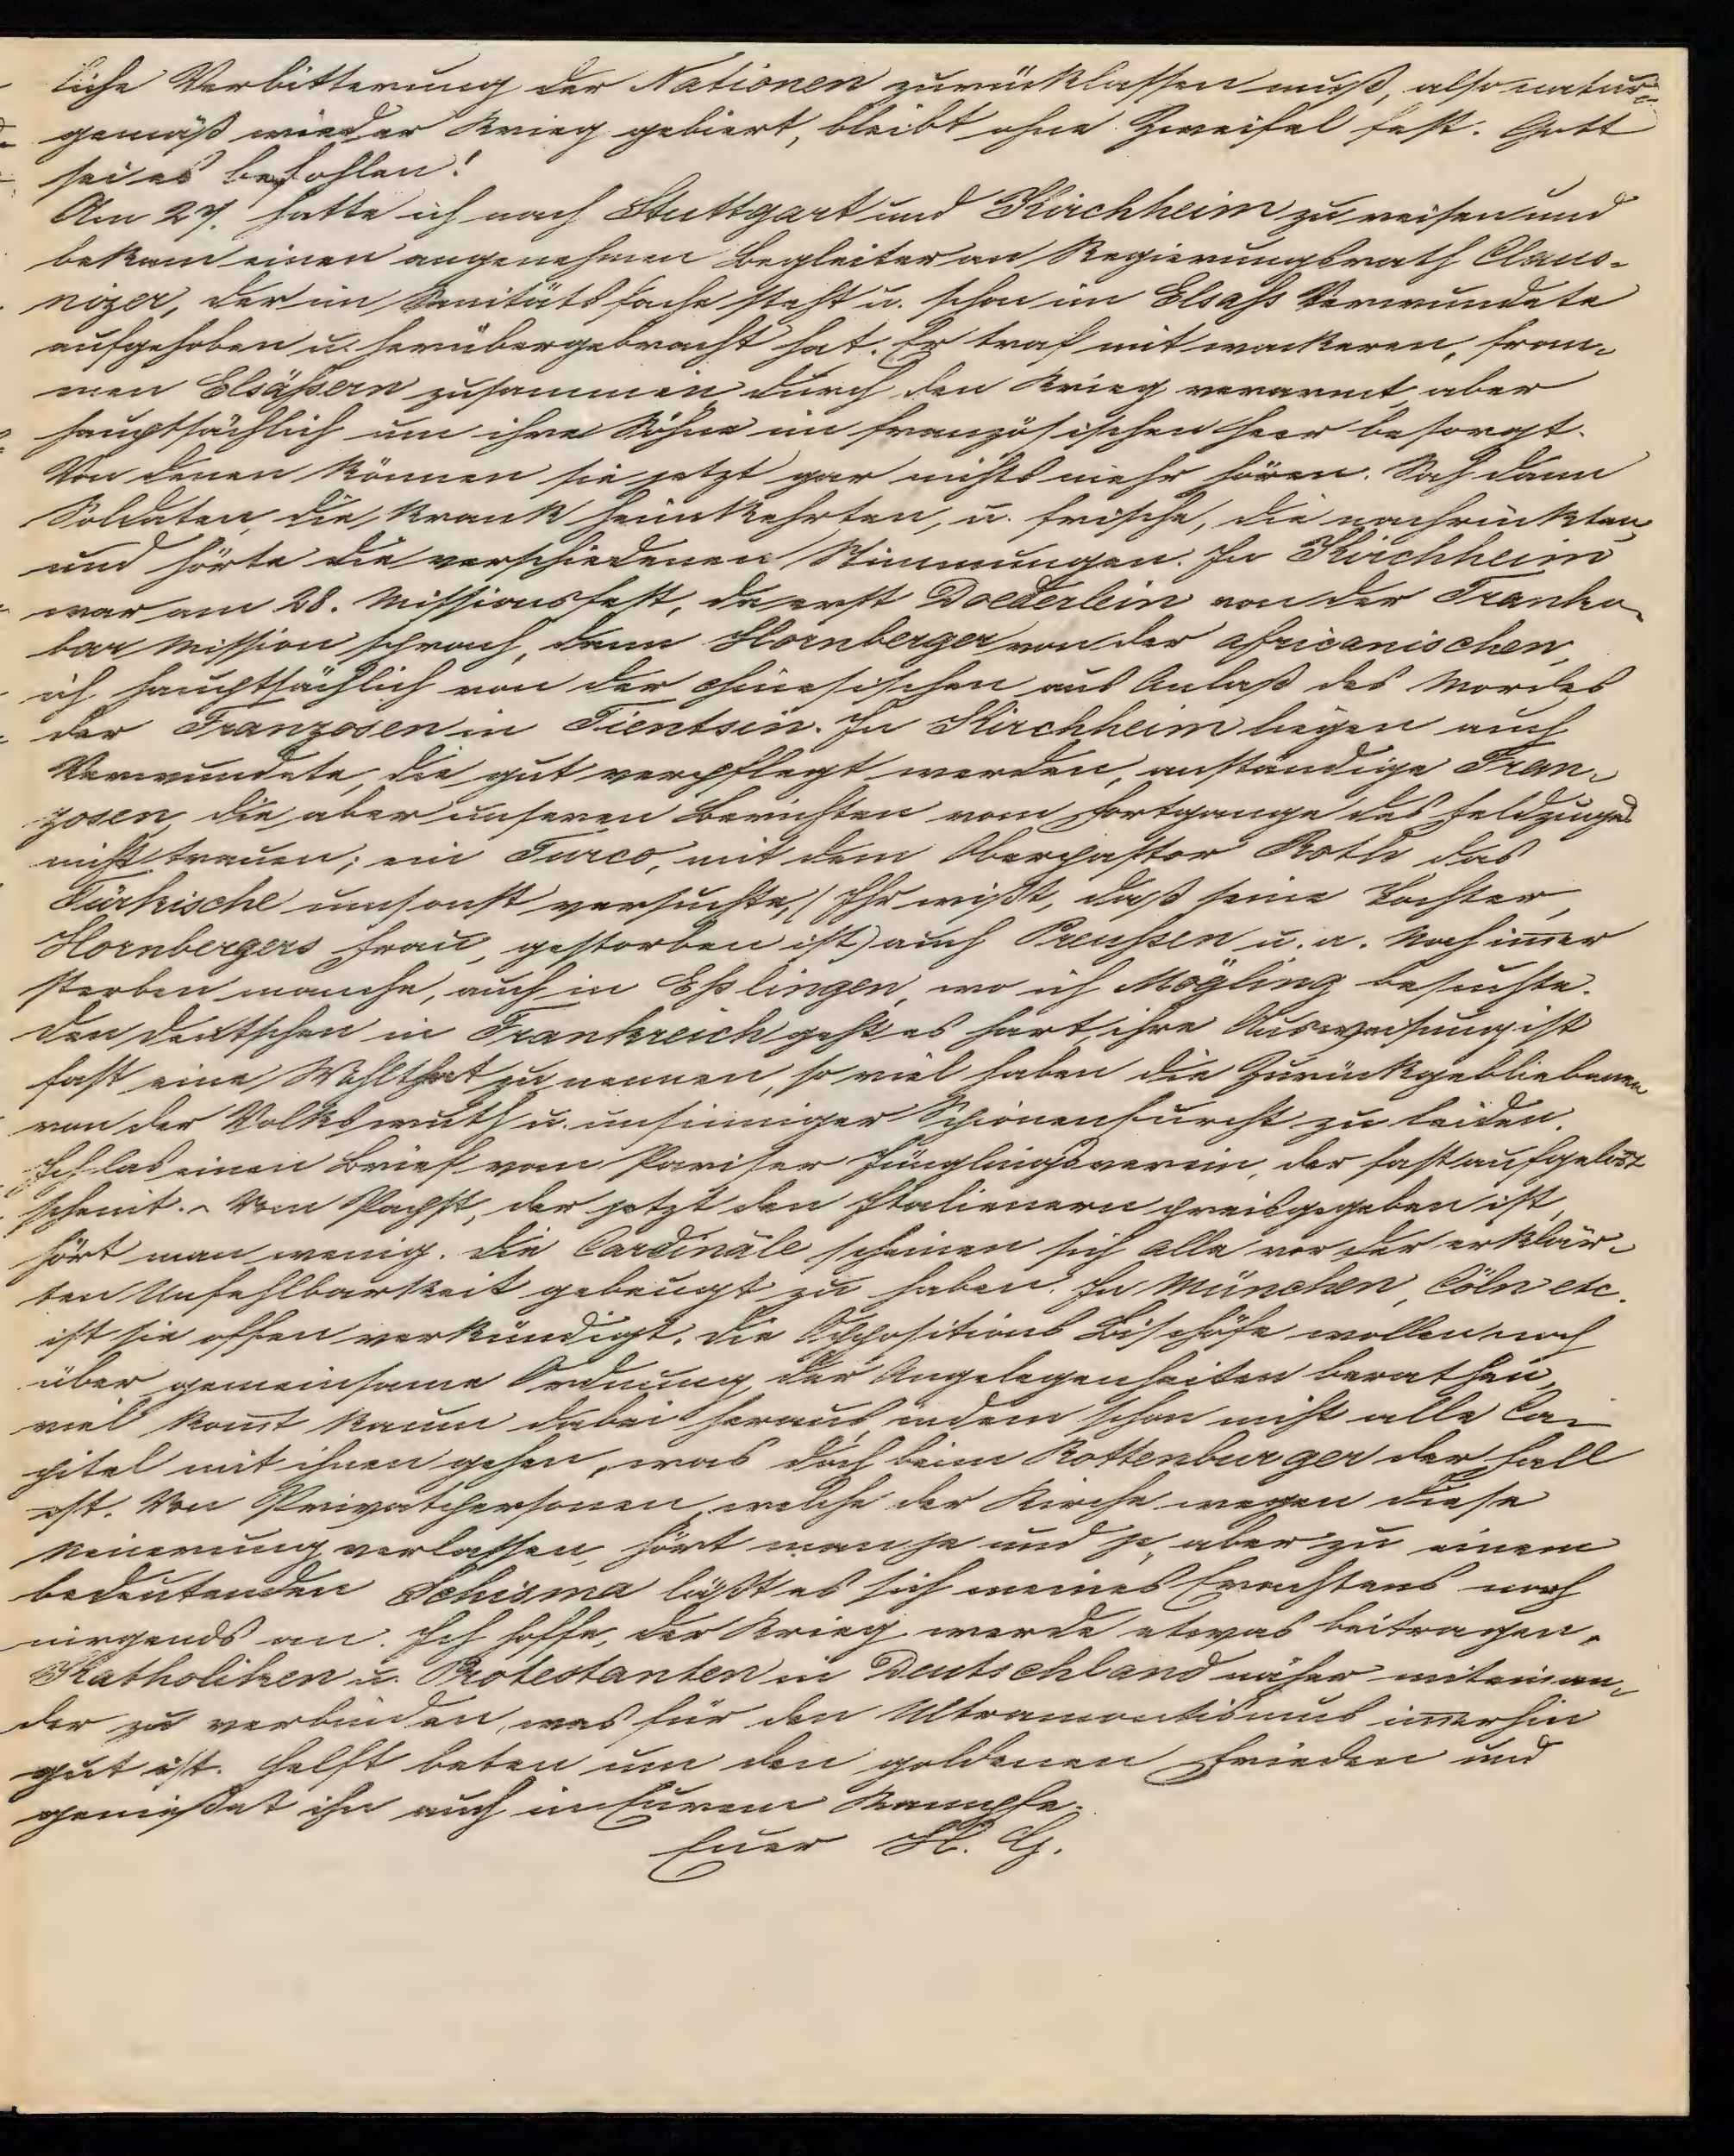 liche Verbitterung der Nationen zurücklassen muß, also natur-
gemäß wieder Krieg gebiert, bleibt ohne Zweifel fest. Gott
sei es befohlen!
Am 27. hatte ich nach Stuttgart und Kirchheim zu reisen und
bekam einen angenehmen Begleiter an Regierungsrath Claus-
nizer, der im Sanitätsfache steht u. schon im Elsaß Verwundete
aufgehoben u. herübergebracht hat. Er traf mit wackeren, from-
men Elsäßern zusammen, durch den Krieg verarmt, aber
hauptsächlich um ihre Söhne im französischen Heer besorgt.
Von denen können sie jetzt gar nichts mehr hören. Sah dann
Soldaten, die krank heimkehrten, u. frische, die nachrückten,
und hörte die verschiedenen Stimmungen. In Kirchheim
war am 28. Missionsfest, da erst Doederlein von der Tranke-
bar Mission sprach, dann Hornberger von der africanischen,
ich hauptsächlich von der chinesischen aus Anlaß des Mordes
der Franzosen in Tientsin. In Kirchheim liegen auch
Verwundete, die gut verpflegt werden, anständige Fran-
zosen, die aber unseren Berichten vom Fortgange des Feldzuges
nicht trauen; ein Turco, mit dem Oberpastor Roth das
Türkische umsonst versuchte, (Ihr wißt, daß seine Tochter,
Hornbergers Frau, gestorben ist) auch Preußen u. a. Noch immer
sterben manche, auch in Eßlingen, wo ich Mögling besuchte.
Den Deutschen in Frankreich geht es hart, ihre Ausweisung ist
fast eine Wohlthat zu nennen, so viel haben die Zurückgebliebenen
von der Volkswuth u. unsinniger Spionenfurcht zu leiden.
Ich las einen Brief vom Pariser Jünglingsverein, der fast aufgelöst
scheint. - Vom Pabst, der jetzt den Italienern preisgegeben ist,
hört man wenig. Die Cardinäle scheinen sich alle vor der erklär-
ten Unfehlbarkeit gebeugt zu haben. In München, Cöln etc.
ist sie offen verkündigt. Die Oppositions Bischöfe wollen noch
über gemeinsame Ordnung der Angelegenheiten berathen,
viel kommt kaum dabei heraus, indem schon nicht alle Ca-
pitel mit ihnen gehen, was doch beim Rottenburger der Fall
ist. Von Privatpersonen, welche der Kirche wegen diese
Neuerung verlassen, hört man je und je, aber zu einem
bedeutenden Schisma läßt es sich meines Erachtens noch
nirgends an. Ich hoffe, der Krieg werde etwas beitragen,
Katholiken u. Protestanten in Deutschland näher miteinan-
der zu verbinden, was für den Ultramontismus immerhin
gut ist. Helft beten um den goldenen Frieden und
genießet ihn auch in Eurem Kampfe.
Euer H. G.